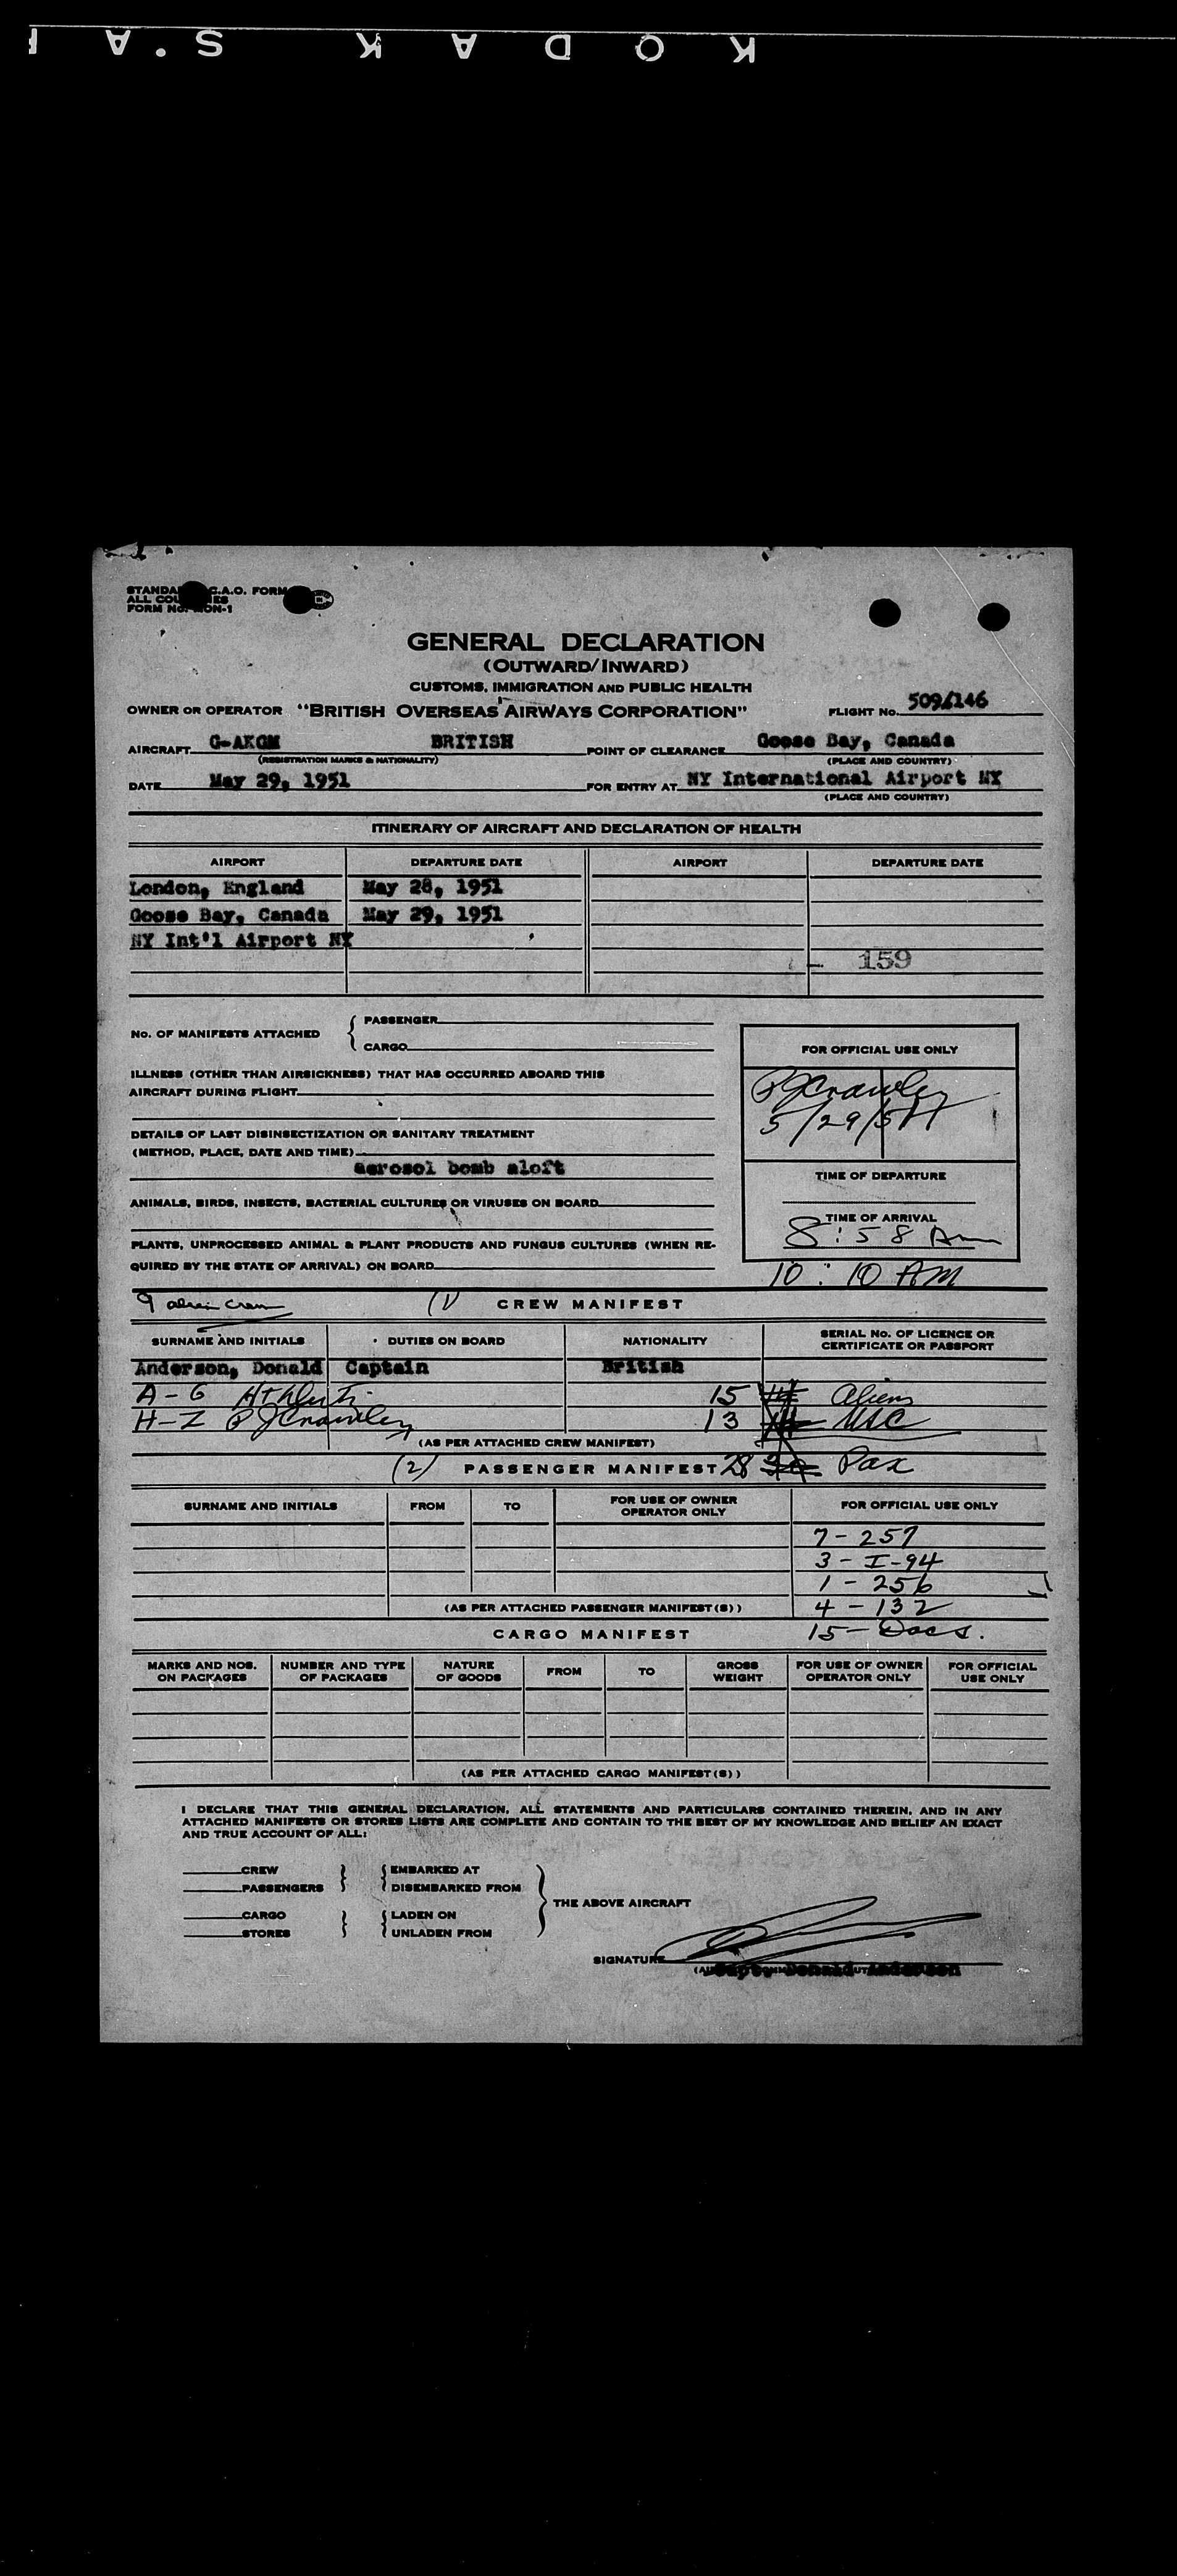 KODAK S.A
STANDA C.A.O. FORM
ALL COU ES
FORM No. ON-1
GENERAL DECLARATION
(OUTWARD/INWARD)
CUSTOMS, IMMIGRATION AND PUBLIC HEALTH
OWNER OR OPERATOR "BRITISH OVERSEAS AIRWAYS CORPORATION" FLIGHT No. 509/146
AIRCRAFT G-AKGM BRITISH POINT OF CLEARANCE Goose Bay, Canada
(REGISTRATION MARKS & NATIONALITY) (PLACE AND COUNTRY)
DATE May 29, 1951 FOR ENTRY AT NY International Airport NY
(PLACE AND COUNTRY)
ITINERARY OF AIRCRAFT AND DECLARATION OF HEALTH
AIRPORT DEPARTURE DATE AIRPORT DEPARTURE DATE
London, England May 28, 1951
Goose Bay, Canada May 29, 1951
NY Int'l Airport NY
- 159
No. OF MANIFESTS ATTACHED { PASSENGER
CARGO
ILLNESS (OTHER THAN AIRSICKNESS) THAT HAS OCCURRED ABOARD THIS
AIRCRAFT DURING FLIGHT
DETAILS OF LAST DISINSECTIZATION OR SANITARY TREATMENT
(METHOD, PLACE, DATE AND TIME)
aerosol bomb aloft
ANIMALS, BIRDS, INSECTS, BACTERIAL CULTURES OR VIRUSES ON BOARD
PLANTS, UNPROCESSED ANIMAL & PLANT PRODUCTS AND FUNGUS CULTURES (WHEN RE-
QUIRED BY THE STATE OF ARRIVAL) ON BOARD
FOR OFFICIAL USE ONLY
PJCrawley
5/29/51
TIME OF DEPARTURE
TIME OF ARRIVAL
8:58 Am
10:10 AM
9 alien crew (1) CREW MANIFEST
SURNAME AND INITIALS DUTIES ON BOARD NATIONALITY SERIAL No. OF LICENCE OR
CERTIFICATE OR PASSPORT
Anderson, Donald Captain British
A-G 15 Aliens
H-Z PJCrawley 13 USC
(AS PER ATTACHED CREW MANIFEST)
(2) PASSENGER MANIFEST 28 Pax
SURNAME AND INITIALS FROM TO FOR USE OF OWNER
OPERATOR ONLY FOR OFFICIAL USE ONLY
7 - 257
3 - I-94
1 - 256
(AS PER ATTACHED PASSENGER MANIFEST(S)) 4 - 132
CARGO MANIFEST 15 - Docs.
MARKS AND NOS.
ON PACKAGES NUMBER AND TYPE
OF PACKAGES NATURE
OF GOODS FROM TO GROSS
WEIGHT FOR USE OF OWNER
OPERATOR ONLY FOR OFFICIAL
USE ONLY
(AS PER ATTACHED CARGO MANIFEST(S))
I DECLARE THAT THIS GENERAL DECLARATION, ALL STATEMENTS AND PARTICULARS CONTAINED THEREIN, AND IN ANY
ATTACHED MANIFESTS OR STORES LISTS ARE COMPLETE AND CONTAIN TO THE BEST OF MY KNOWLEDGE AND BELIEF AN EXACT
AND TRUE ACCOUNT OF ALL:
CREW EMBARKED AT
PASSENGERS DISEMBARKED FROM
THE ABOVE AIRCRAFT
CARGO LADEN ON
STORES UNLADEN FROM
SIGNATURE
Capt. Donald Anderson